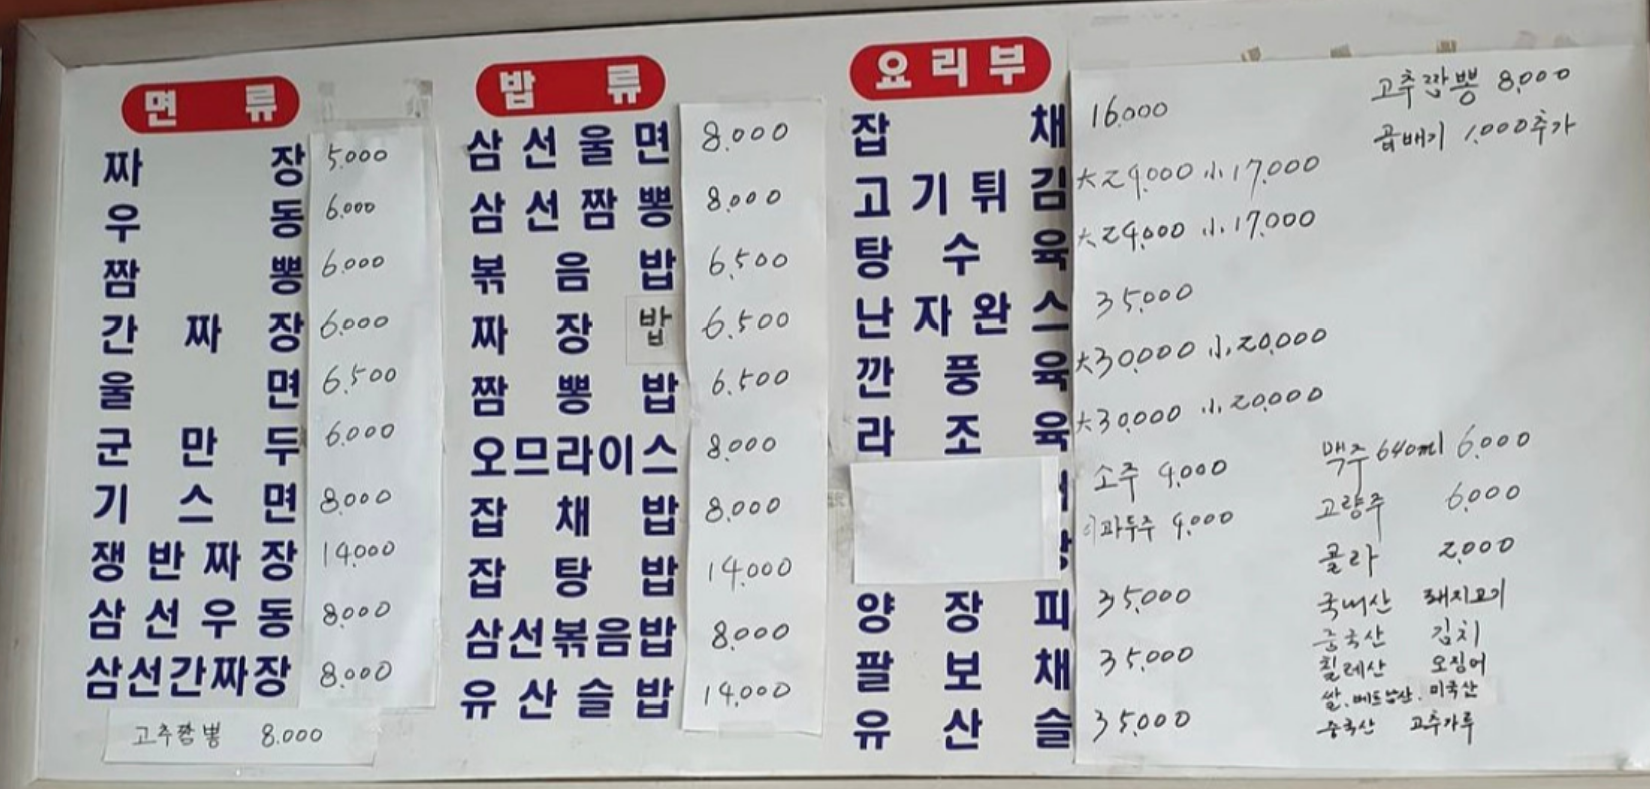 면류
짜장 5.000
우동 6.000
짬뽕 6.000
간짜장 6.000
울면 6.500
군만두 6.000
기스면 8.000
쟁반짜장 14.000
삼선우동 8.000
삼선간짜장 8.000
고추짬뽕 8.000
밥류
삼선울면 8.000
삼선짬뽕 8.000
볶음밥 6.500
짜장밥 6.500
짬뽕밥 6.500
오므라이스 8.000
잡채밥 8.000
잡탕밥 14.000
삼선볶음밥 8.000
유산슬밥 14.000
요리부
잡채 16.000
고기튀김 大24.000 小17.000
탕수육 大24.000 小17.000
난자완스 35.000
깐풍육 大30.000 小20.000
라조육 大30.000 小20.000
소주 4.000
이과두주 4.000
양장피 35.000
팔보채 35.000
유산슬 35.000
고추짬뽕 8.000
곱배기 1.000추가
맥주 640ml 6.000
고량주 6.000
콜라 2.000
국내산 돼지고기
중국산 김치
칠레산 오징어
쌀.베트남산.미국산
중국산 고추가루